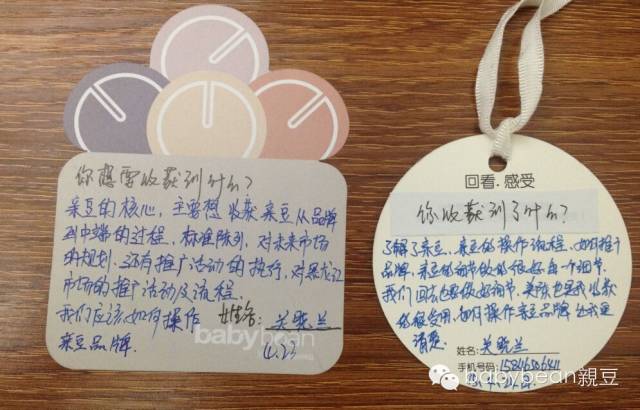 你想要收获到什么?
亲豆的核心，主要想收获亲豆从品牌
到中端的过程，标准陈列，对未来市场
的规划.还有推广活动的执行，对黑龙江
市场的推广活动及流程.
我们应该如何操作
亲豆品牌.
姓名:关晓兰
babybean
4.23
回看.感受
你收获到了什么?
了解了亲豆，亲豆的操作流程，如何推广
品牌，亲豆的细节做的很好每一个细节.
我们回去也要做好细节.
如何操作亲豆品牌
清楚.
姓名:关晓兰
手机号码:
babybean親豆